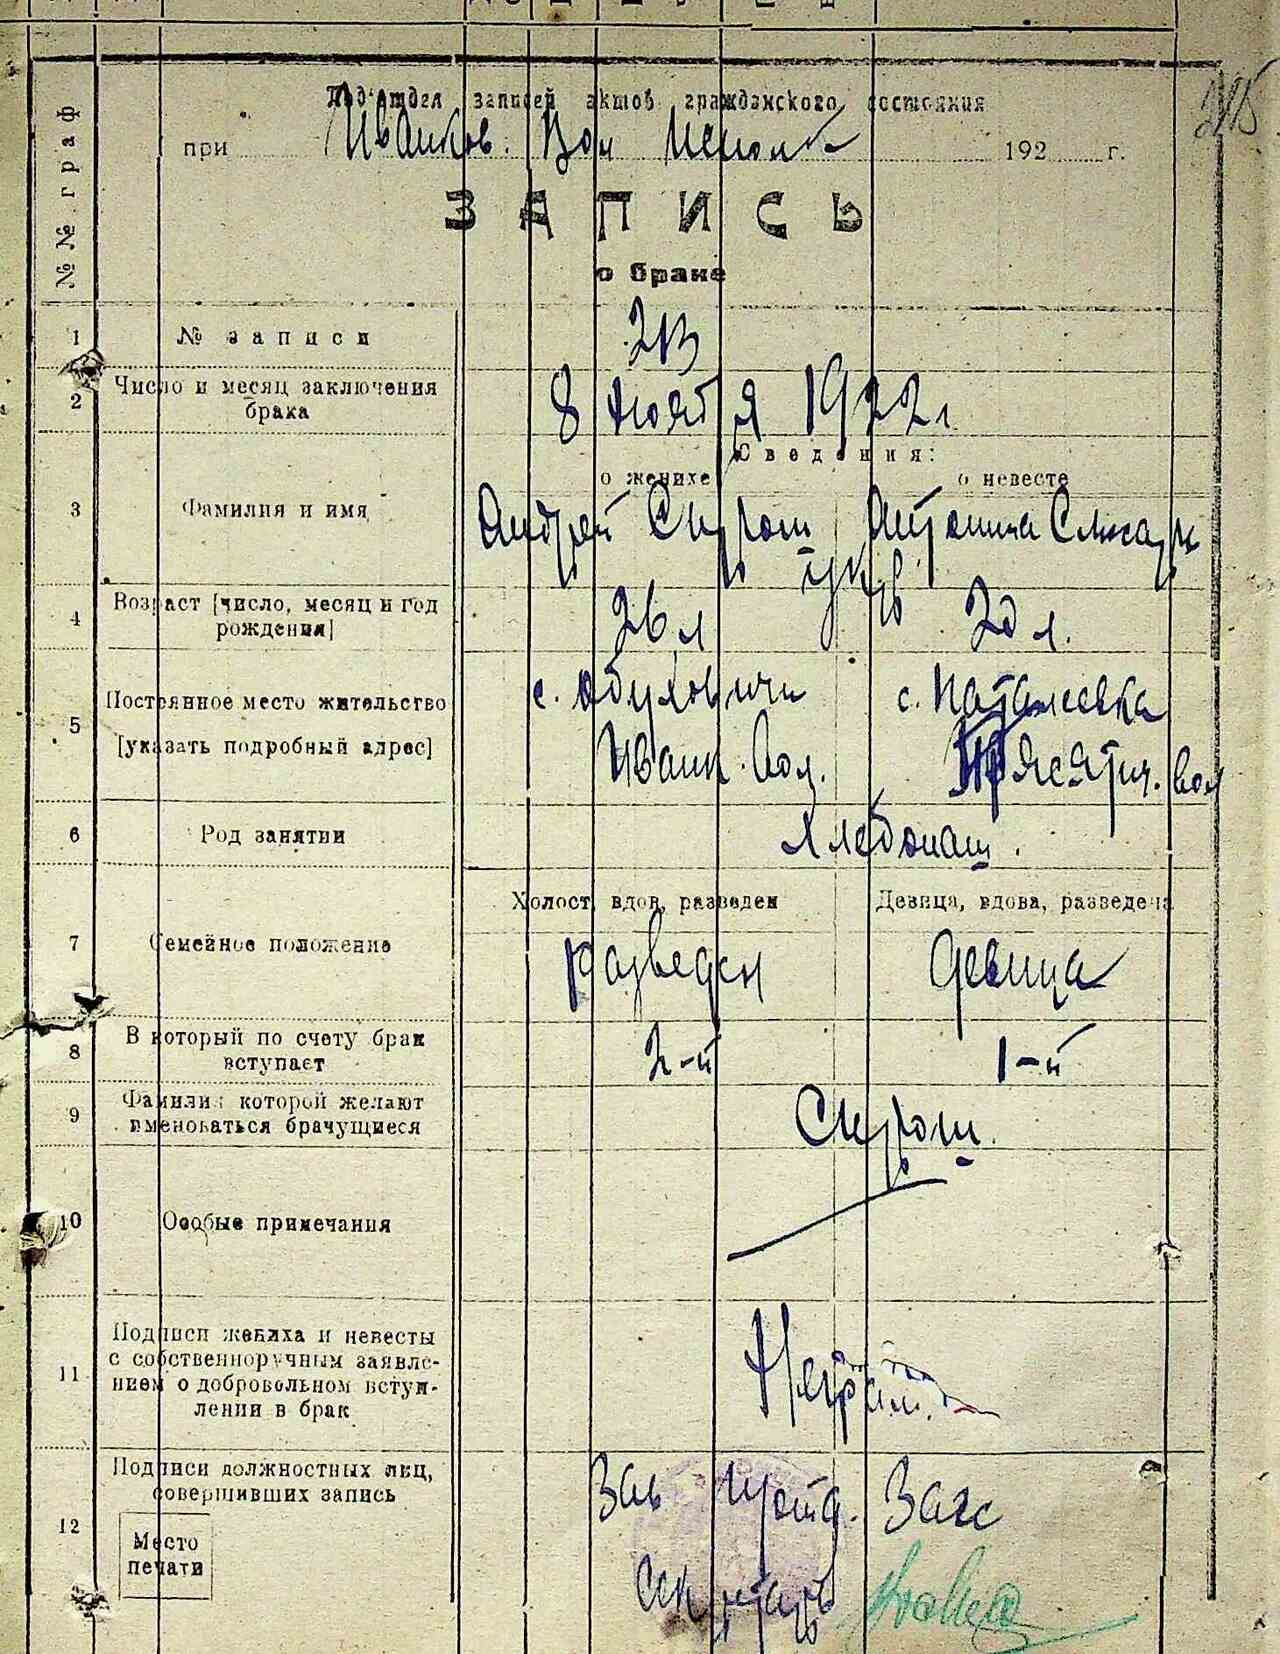 Под'отдел записей актов гражданского состояния
при Иванков. Вол 192 г.
ЗАПИСЬ
о браке
№№ граф
1 № записи
2 Число и месяц заключения брака 8 Ноября 1922 г
Сведения:
о женихе о невесте
3 Фамилия и имя Андрей Антонина
4 Возраст [число, месяц и год рождения] 26 л 20 л.
5 Постоянное место жительство с. Обуховичи с. Наталеевка
[указать подробный адрес] Иванк. Вол. вол
6 Род занятии Хлебопаш.
Холост, вдов, разведен Девица, вдова, разведена
7 Семейное положение разведен девица
8 В который по счету брак вступает 2-й 1-й
9 Фамилия которой желают именоваться брачущиеся
10 Особые примечания
11 Подписи жениха и невесты
с собственноручным заявле-
нием о добровольном вступ-
лении в брак
Неграм.
12 Подписи должностных лиц,
совершивших запись
Зав Загс
Место
печати
Секретарь